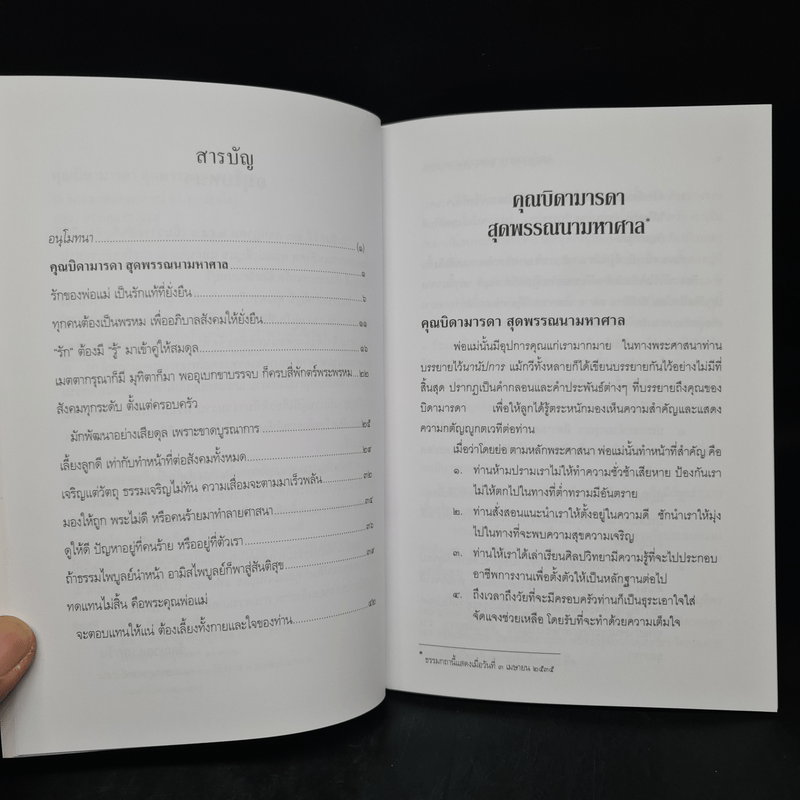 สารบัญ
อนุโมทนา (๑)
คุณบิดามารดา สุดพรรณนามหาศาล ๑
รักของพ่อแม่ เป็นรักแท้ที่ยั่งยืน ๖
ทุกคนต้องเป็นพรหม เพื่ออภิบาลสังคมให้ยั่งยืน ๑๑
“รัก” ต้องมี “รู้” มาเข้าคู่ให้สมดุล ๑๖
เมตตากรุณาก็มี มุทิตาก็มา พออุเบกขาบรรจบ ก็ครบสี่พักตร์พระพรหม ๒๒
สังคมทุกระดับ ตั้งแต่ครอบครัว
มักพัฒนาอย่างเสียดุล เพราะขาดบูรณาการ ๒๕
เลี้ยงลูกดี เท่ากับทำหน้าที่ต่อสังคมทั้งหมด ๒๙
เจริญแต่วัตถุ ธรรมเจริญไม่ทัน ความเสื่อมจะตามมาเร็วพลัน ๓๒
มองให้ถูก พระไม่ดี หรือคนร้ายมาทำลายศาสนา ๓๔
ดูให้ดี ปัญหาอยู่ที่คนร้าย หรืออยู่ที่ตัวเรา ๓๖
ถ้าธรรมไพบูลย์นำหน้า อามิสไพบูลย์ก็พาสู่สันติสุข ๓๙
ทดแทนไม่สิ้น คือพระคุณพ่อแม่
จะตอบแทนให้แน่ ต้องเลี้ยงทั้งกายและใจของท่าน ๔๒
คุณบิดามารดา
สุดพรรณนามหาศาล*
คุณบิดามารดา สุดพรรณนามหาศาล
พ่อแม่นั้นมีอุปการคุณแก่เรามากมาย ในทางพระศาสนาท่าน
บรรยายไว้นานัปการ แม้กวีทั้งหลายก็ได้เขียนบรรยายกันไว้อย่างไม่มีที่
สิ้นสุด ปรากฏเป็นคำกลอนและคำประพันธ์ต่างๆ ที่บรรยายถึงคุณของ
บิดามารดา เพื่อให้ลูกได้รู้ตระหนักมองเห็นความสำคัญและแสดง
ความกตัญญูกตเวทีต่อท่าน
เมื่อว่าโดยย่อ ตามหลักพระศาสนา พ่อแม่นั้นทำหน้าที่สำคัญ คือ
๑. ท่านห้ามปรามเราไม่ให้ทำความชั่วช้าเสียหาย ป้องกันเรา
ไม่ให้ตกไปในทางที่ต่ำทรามมีอันตราย
๒. ท่านสั่งสอนแนะนำเราให้ตั้งอยู่ในความดี ชักนำเราให้มุ่ง
ไปในทางที่จะพบความสุขความเจริญ
๓. ท่านให้เราได้เล่าเรียนศิลปวิทยามีความรู้ที่จะไปประกอบ
อาชีพการงานเพื่อตั้งตัวให้เป็นหลักฐานต่อไป
๔. ถึงเวลาถึงวัยที่จะมีครอบครัวท่านก็เป็นธุระเอาใจใส่
จัดแจงช่วยเหลือ โดยรับที่จะทำด้วยความเต็มใจ
* ธรรมกถานี้แสดงเมื่อวันที่ ๓ เมษายน ๒๕๓๕